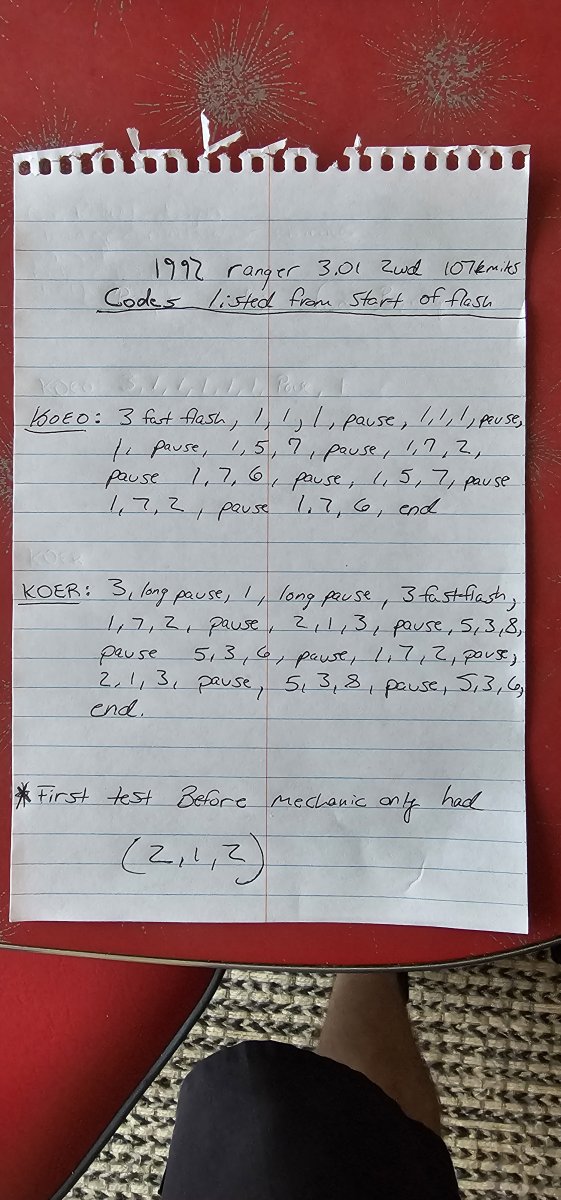 1992 ranger 3.0l 2wd 107kmiles
Codes listed from start of flash
KOEO: 3 fast flash, 1, 1, 1, pause, 1,1,1, pause,
1, pause, 1,5,7, pause, 1,7,2,
pause 1,7,6, pause, 1,5,7, pause
1,7,2, pause 1,7,6, end
KOER: 3, long pause, 1, long pause, 3 fast flash,
1,7,2, pause, 2,1,3, pause, 5,3,8,
pause 5,3,6, pause, 1,7,2, pause,
2,1,3, pause, 5,3,8, pause, 5,3,6,
end.
*First test Before mechanic only had
(2,1,2)